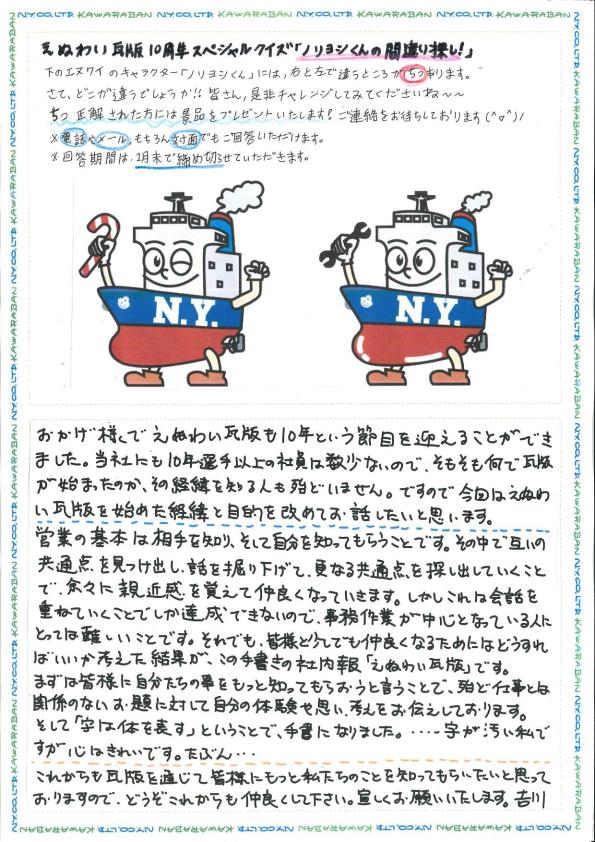 えぬわい瓦版10周年スペシャルクイズ「ノリヨシくんの間違り探し!」
下のエヌワイのキャラクター「ノリヨシくん」には、右と左で違うところが5つ有ります。
さて、どこが違うでしょうか!!皆さん、是非チャレンジしてみてくださいね〜〜
5つ正解された方には景品をプレゼントいたします?ご連絡をお待ちしております(^o^)/
※電話やメール、もちろん対面でもご回答いただけます。
※回答期間は、2月末で締め切らせていただきます。
N.Y.
N.Y.
おかげ様でえぬわい瓦版も10年という節目を迎えることができ
ました。当社にも10年選手以上の社員は数少ないので、そもそも何で瓦版
が始まったのか、その経緯を知る人も殆どいません。ですので今回はえぬわ
い瓦版を始めた経緯と目的を改めてお話したいと思います。
営業の基本は相手を知り、そして自分を知ってもらうことです。その中で互いの
共通点を見つけ出し、話を掘り下げて、更なる共通点を探し出していくこと
で、余々に親近感を覚えて仲良くなっていきます。しかしこれは会話を
重ねていくことでしか達成できないので、事務作業が中心となっている人に
とっては難しいことです。それでも、皆様とうしても仲良くなるためにはどうすれ
ばいいか考えた結果が、この手書きの社内報「えぬわい瓦版」です。
まずは皆様に自分たちの事をもっと知ってもらおうと言うことで、殆ど仕事とは
関係のないお題に対して自分の体験や思い、考えをお伝えしております。
そして「字は体を表す」ということで、手書になりました。‥‥字が汚い私で
すが心はきれいです。たぶん…
これからも瓦版を通じて皆様にもっと私たちのことを知ってもらいたいと思って
おりますので、どうぞこれからも仲良くして下さい。宜しくお願いいたします。吉川
N.Y.CO.,LTD. KAWARABAN